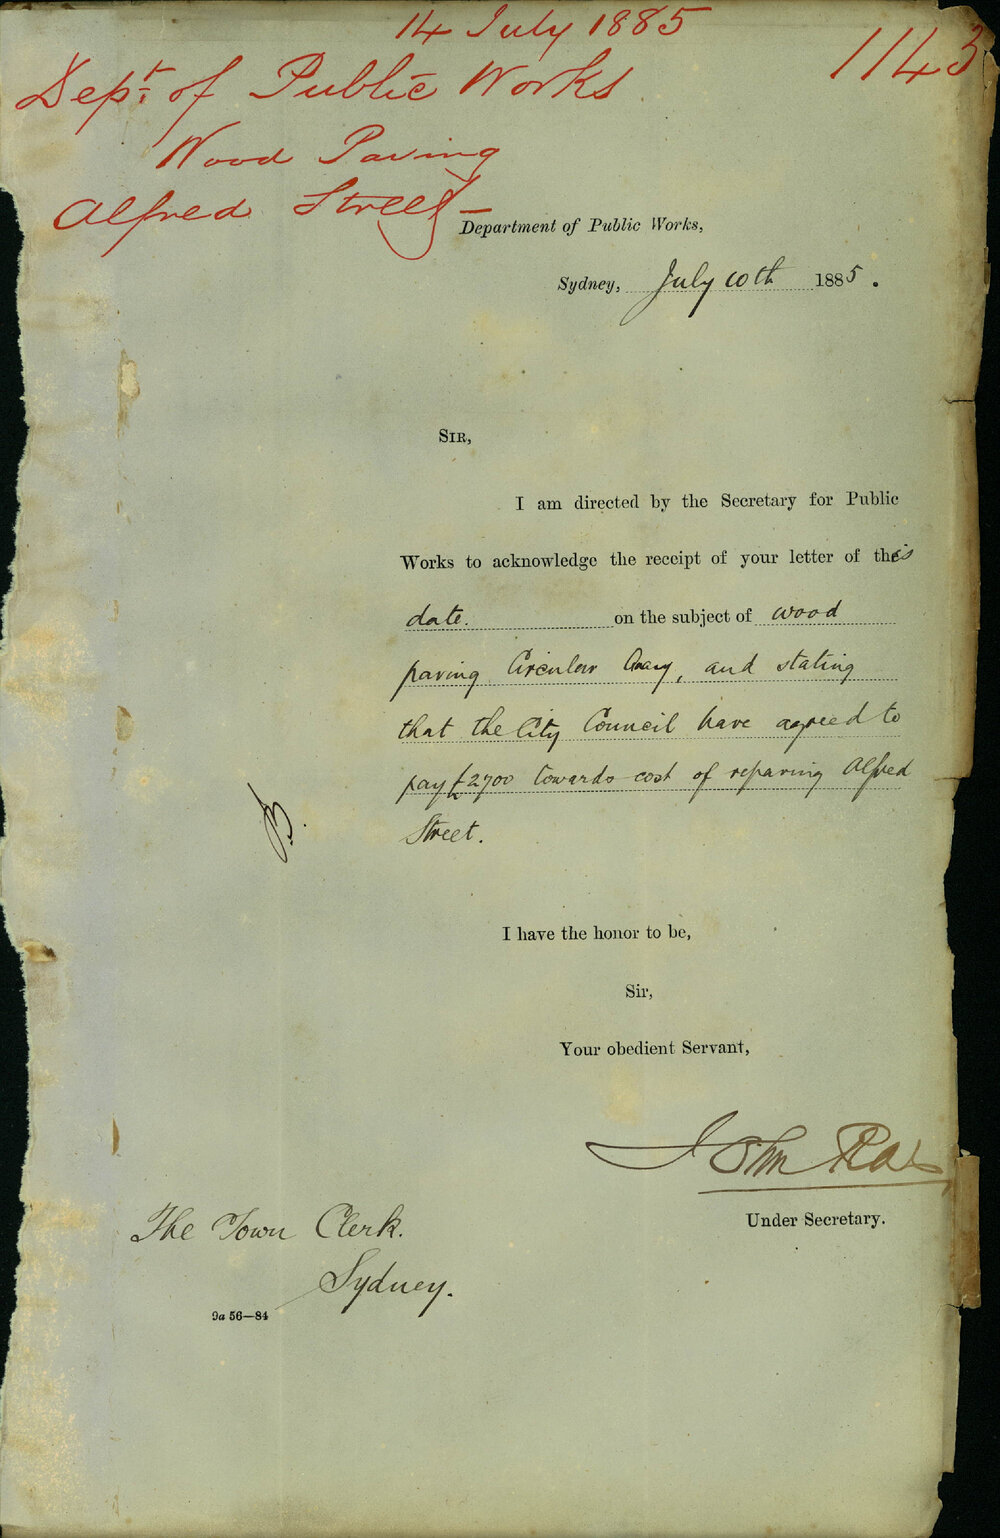 14 July 1885
1143
Dept. of Public Works
Wood Paving
Alfred Street—
Department of Public Works,
Sydney, July 10th 1885.
SIR,
I am directed by the Secretary for Public
Works to acknowledge the receipt of your letter of this
date. on the subject of wood
paving Circular Quay, and stating
that the City Council have agreed to
pay £2700 towards cost of repaving Alfred
Street.
I have the honor to be,
Sir,
Your obedient Servant,
John Rae
Under Secretary.
The Town Clerk.
Sydney.
9a 56—84